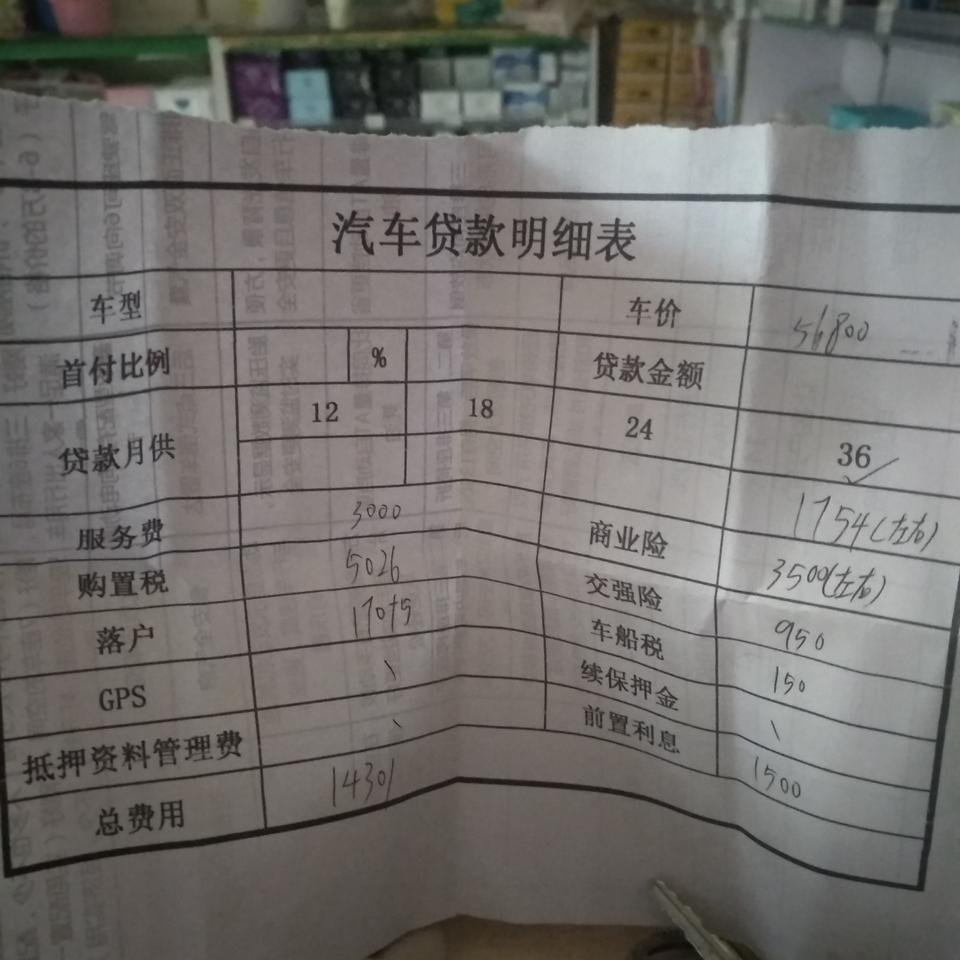 汽车贷款明细表
车型 车价 56800
首付比例 % 贷款金额
贷款月供 12 18 24 36 ✓
1754(左右)
服务费 3000 商业险 3500(左右)
购置税 5026 交强险 950
落户 车船税 150
GPS \ 续保押金 \
抵押资料管理费 \ 前置利息 1500
总费用 14301